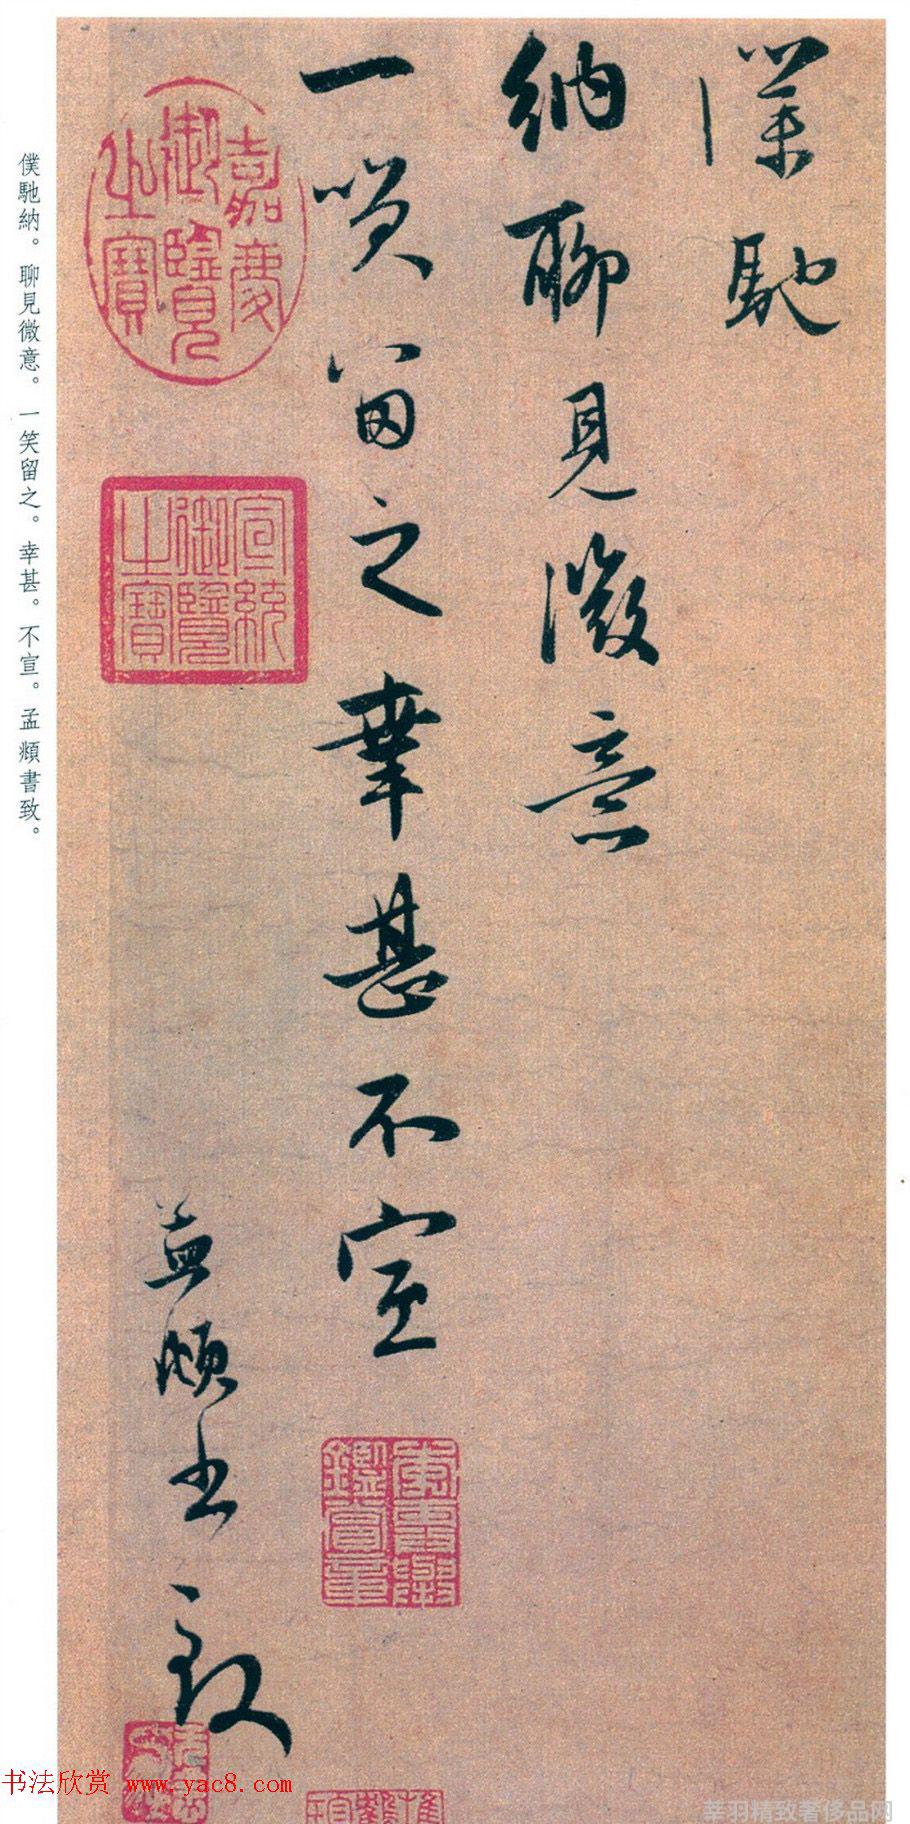 僕馳
納聊見微意
一笑留之幸甚不宣
孟頫書致
嘉慶
御覽
之寶
宣統
御覽
之寶
僕馳納。聊見微意。一笑留之。幸甚。不宣。孟頫書致。
书法欣赏 www.yac8.com
莘羽精致奢侈品网